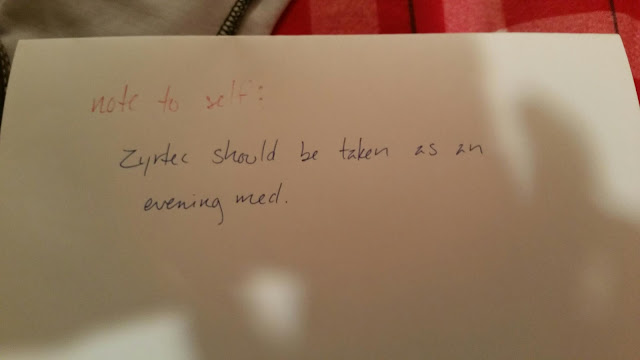 note to self:
Zyrtec should be taken as an
evening med.